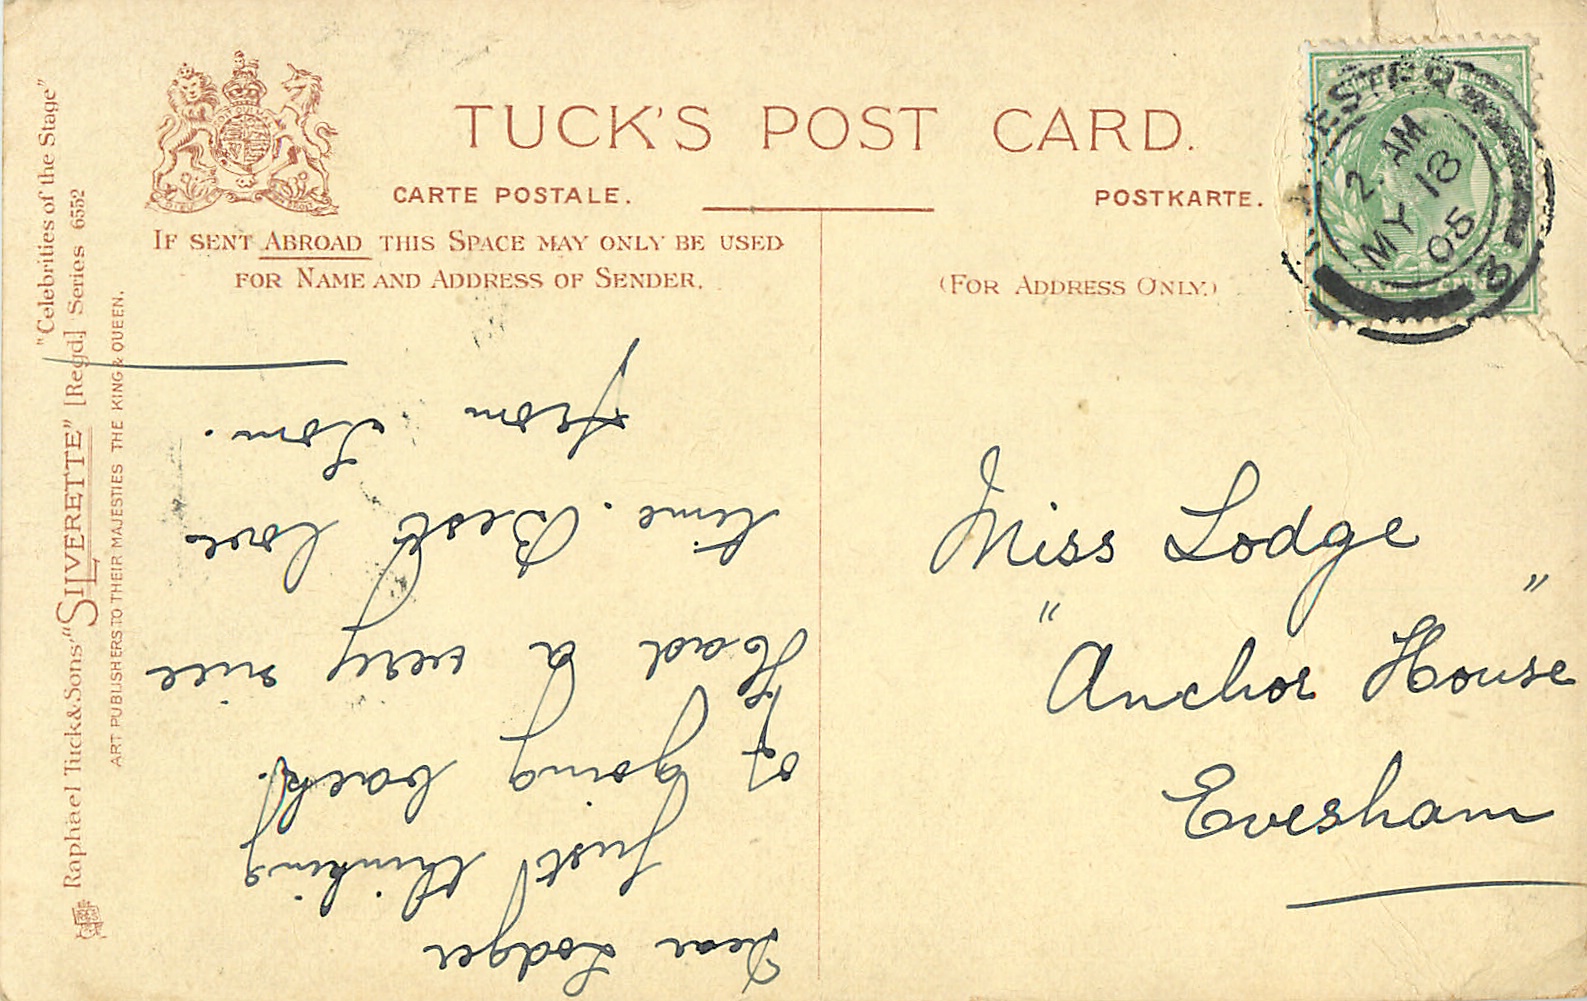 TUCK'S POST CARD.
CARTE POSTALE.
POSTKARTE.
IF SENT ABROAD THIS SPACE MAY ONLY BE USED
FOR NAME AND ADDRESS OF SENDER.
(FOR ADDRESS ONLY.)
"Celebrities of the Stage"
Raphael Tuck & Sons' "SILVERETTE" [Regd.] Series 6552
ART PUBLISHERS TO THEIR MAJESTIES THE KING & QUEEN.
2. AM
MY 18
05
8
Dear Lodger
Just thinking
of going back.
Had a very nice
time. Best love
from Tom.
Miss Lodge
"Anchor House"
Evesham